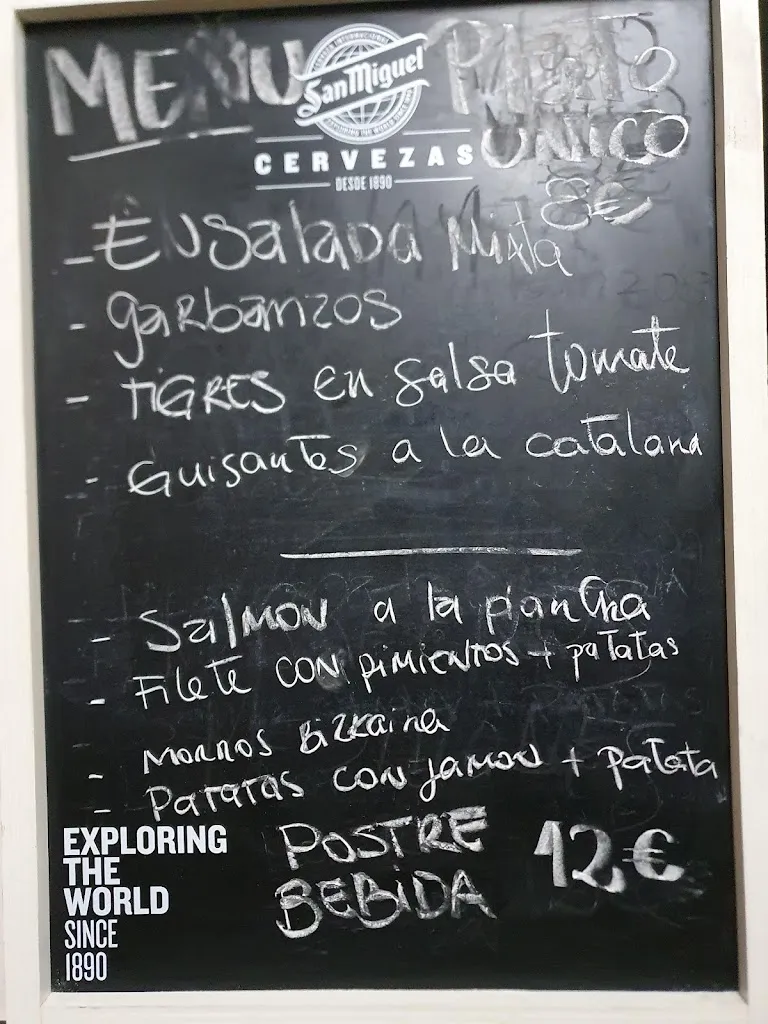 MENU
PLATO
UNICO
8€
CERVEZA INTERNACIONAL
San Miguel
EXPLORING THE WORLD SINCE 1890
CERVEZAS
DESDE 1890
- Ensalada Mixta
- garbanzos
- TIGRES en salsa tomate
- Guisantes a la catalana
- Salmon a la plancha
- Filete con pimientos + patatas
- Morros Bizkaina
- Patatas con jamon + patata
POSTRE
BEBIDA
12€
EXPLORING
THE
WORLD
SINCE
1890